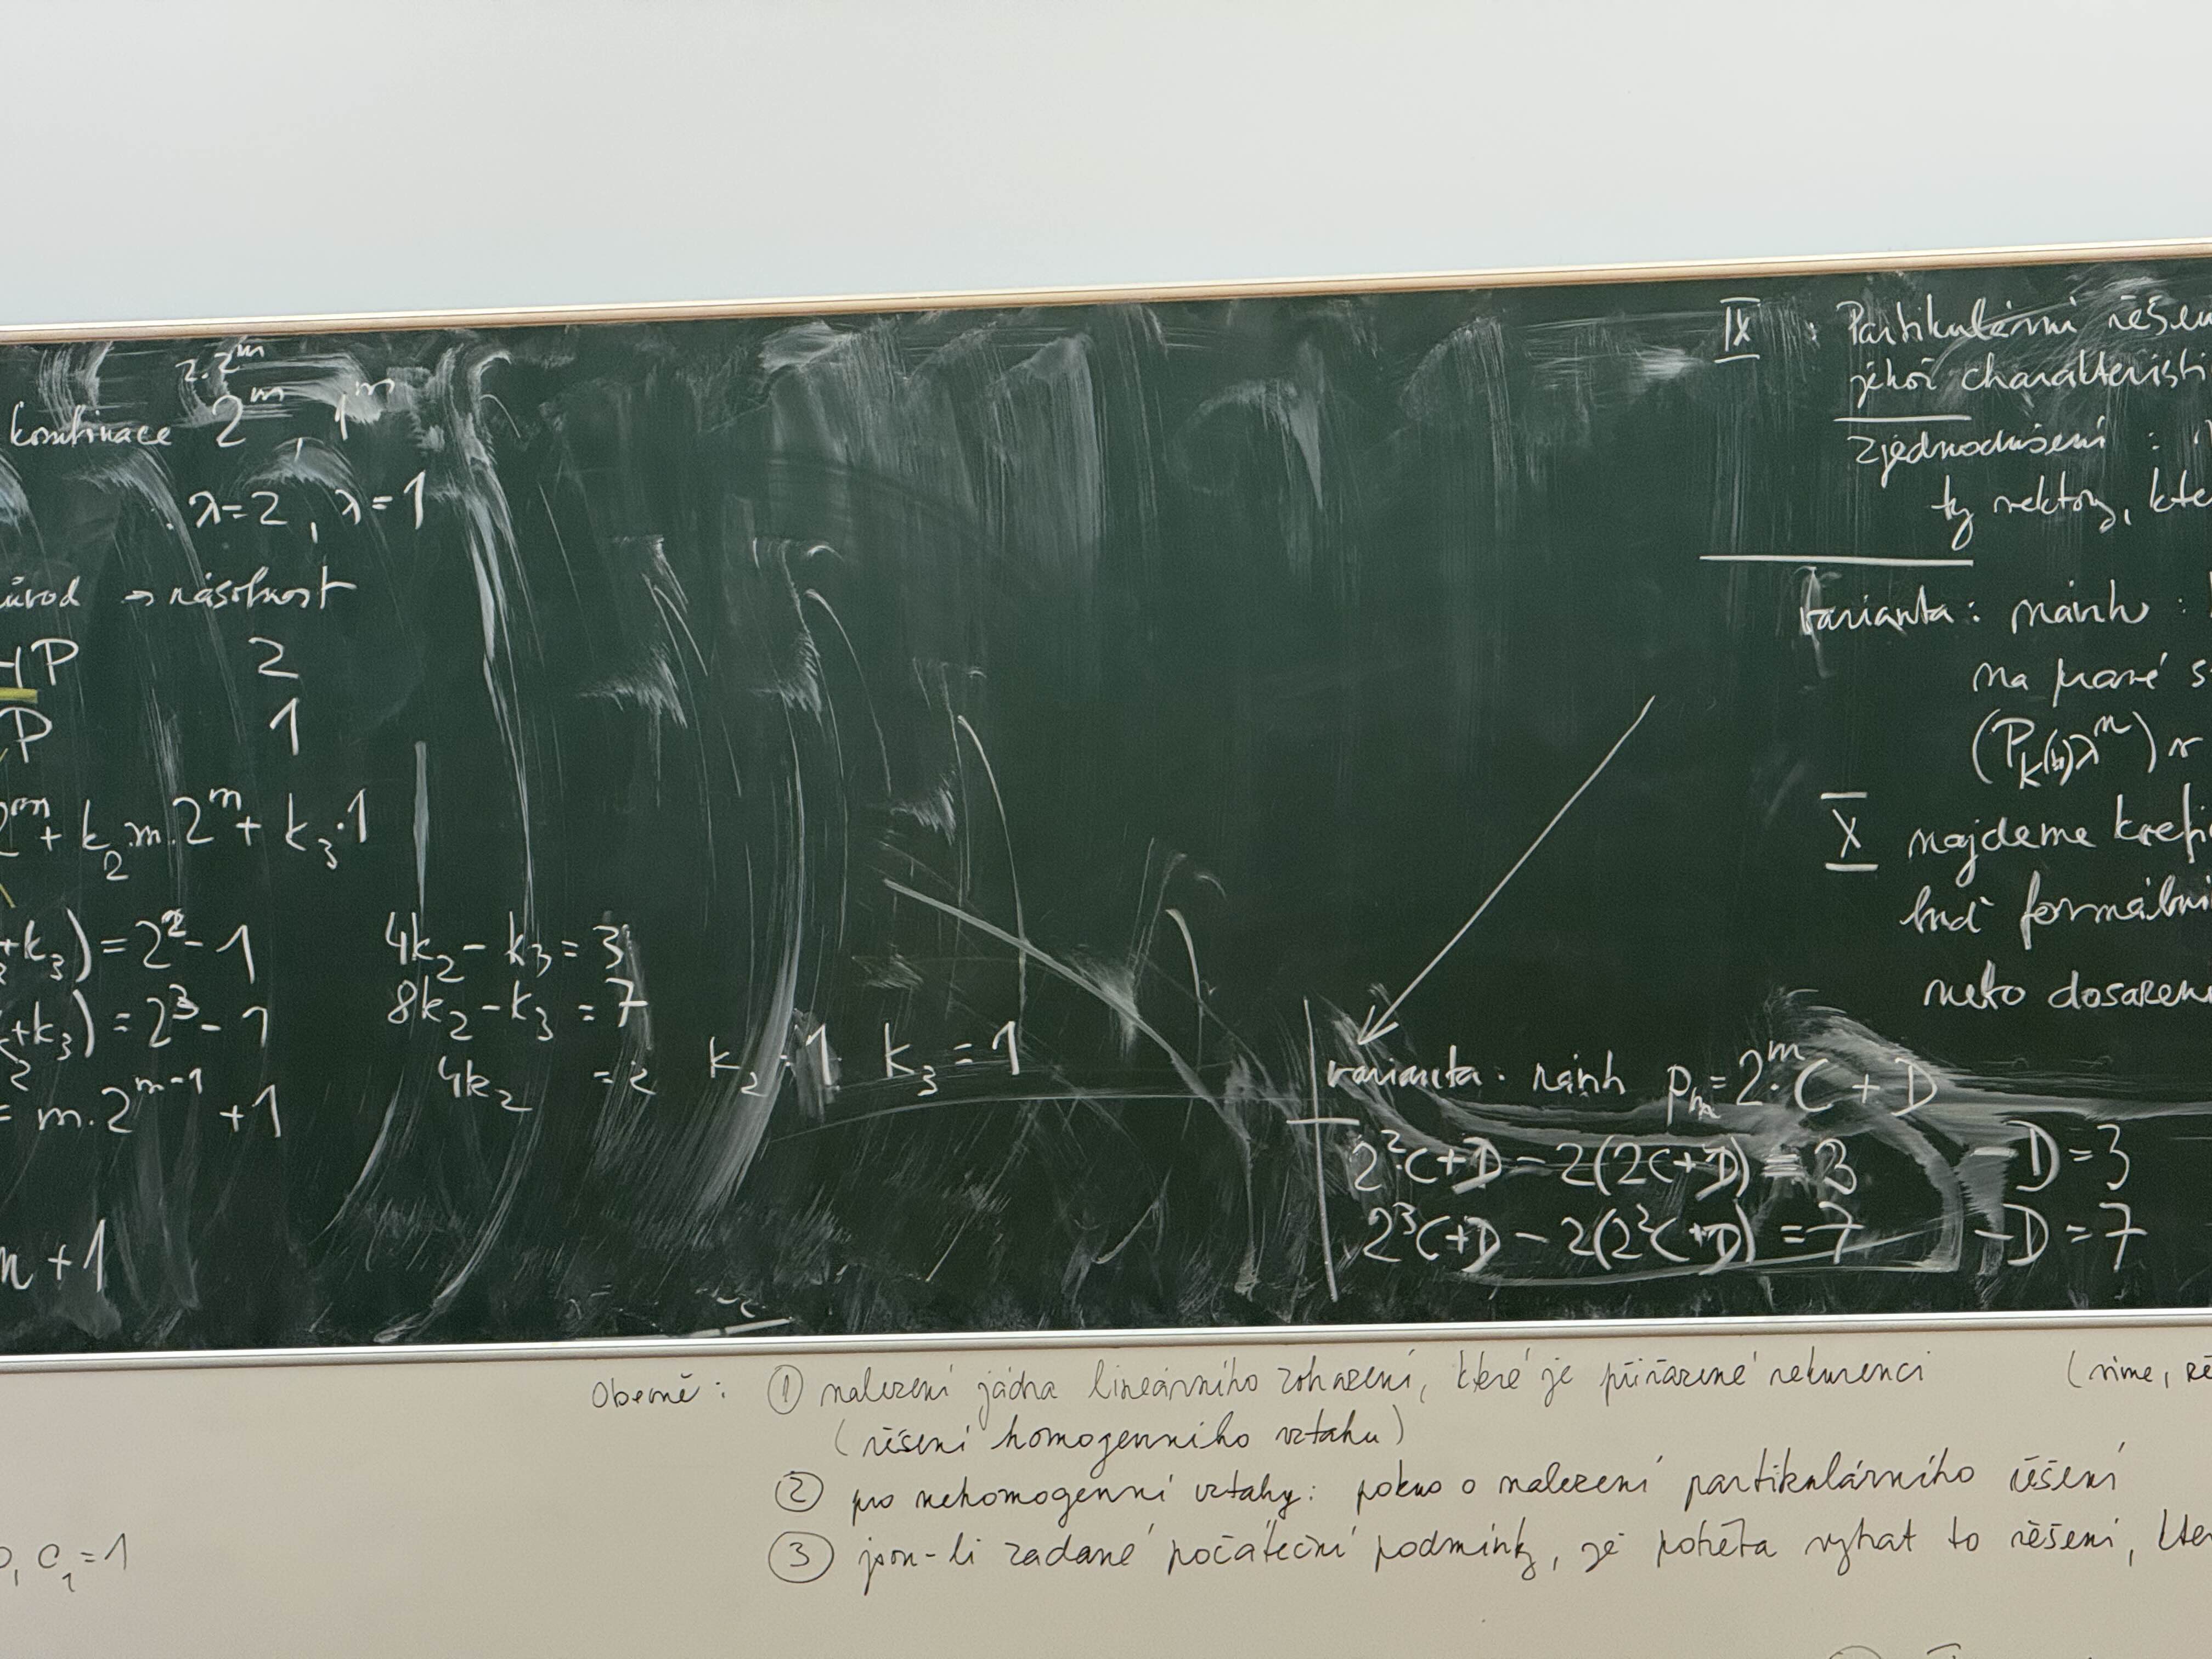 2.2^m
kombinace 2^m, 1^m
λ=2, λ=1
původ → násobnost
P 2
P 1
2^m + k_2.m.2^m + k_3.1
+k_3) = 2^2 - 1
+k_3) = 2^3 - 1
= m.2^{m-1} + 1
n + 1
4k_2 - k_3 = 3
8k_2 - k_3 = 7
4k_2
k_2 = 1 k_3 = 1
IX : Partikulární řešen
jehož charakteristi
zjednodušení :
ty vektory, kte
varianta: návrh :
na pravé s
(P_k(n)λ^n) v
X najdeme koefi
buď formální
nebo dosazen
varianta. návrh p_n = 2^m.C + D
2^2C+D - 2(2C+D) = 3 -D = 3
2^3C+D - 2(2^2C+D) = 7 -D = 7
Obecně: ① nalezení jádra lineárního zobrazení, které je přiřazené rekurenci (víme, ře
(řešení homogenního vztahu)
② pro nehomogenní vztahy: pokus o nalezení partikulárního řešení
③ jsou-li zadané počáteční podmínky, je potřeba vybrat to řešení, kter
c_1 = 1